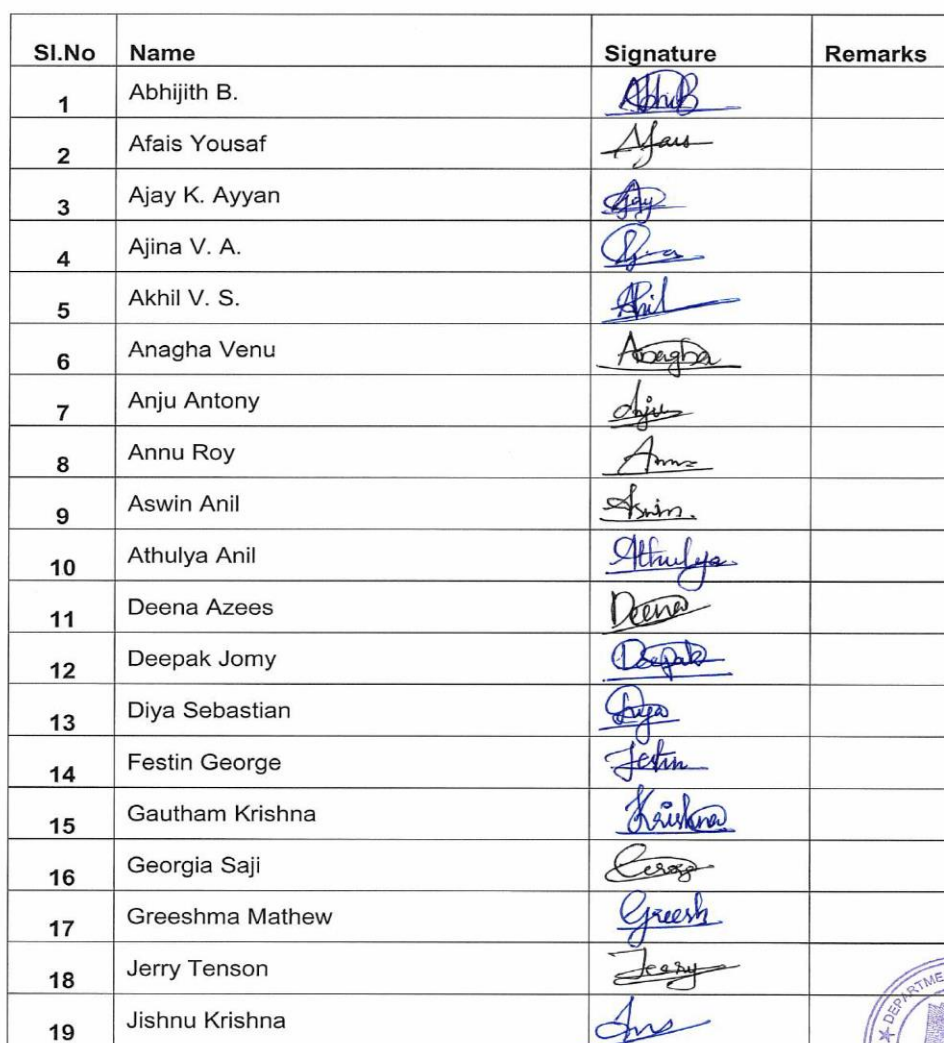 Sl.No Name Signature Remarks
1 Abhijith B. AbhiB
2 Afais Yousaf Afais
3 Ajay K. Ayyan Ajay
4 Ajina V. A.
5 Akhil V. S. Akhil
6 Anagha Venu Anagha
7 Anju Antony Anju
8 Annu Roy
9 Aswin Anil Aswin.
10 Athulya Anil Athulya
11 Deena Azees Deena
12 Deepak Jomy Deepak
13 Diya Sebastian Diya
14 Festin George Festin
15 Gautham Krishna Krishna
16 Georgia Saji
17 Greeshma Mathew Greesh
18 Jerry Tenson Jerry
19 Jishnu Krishna